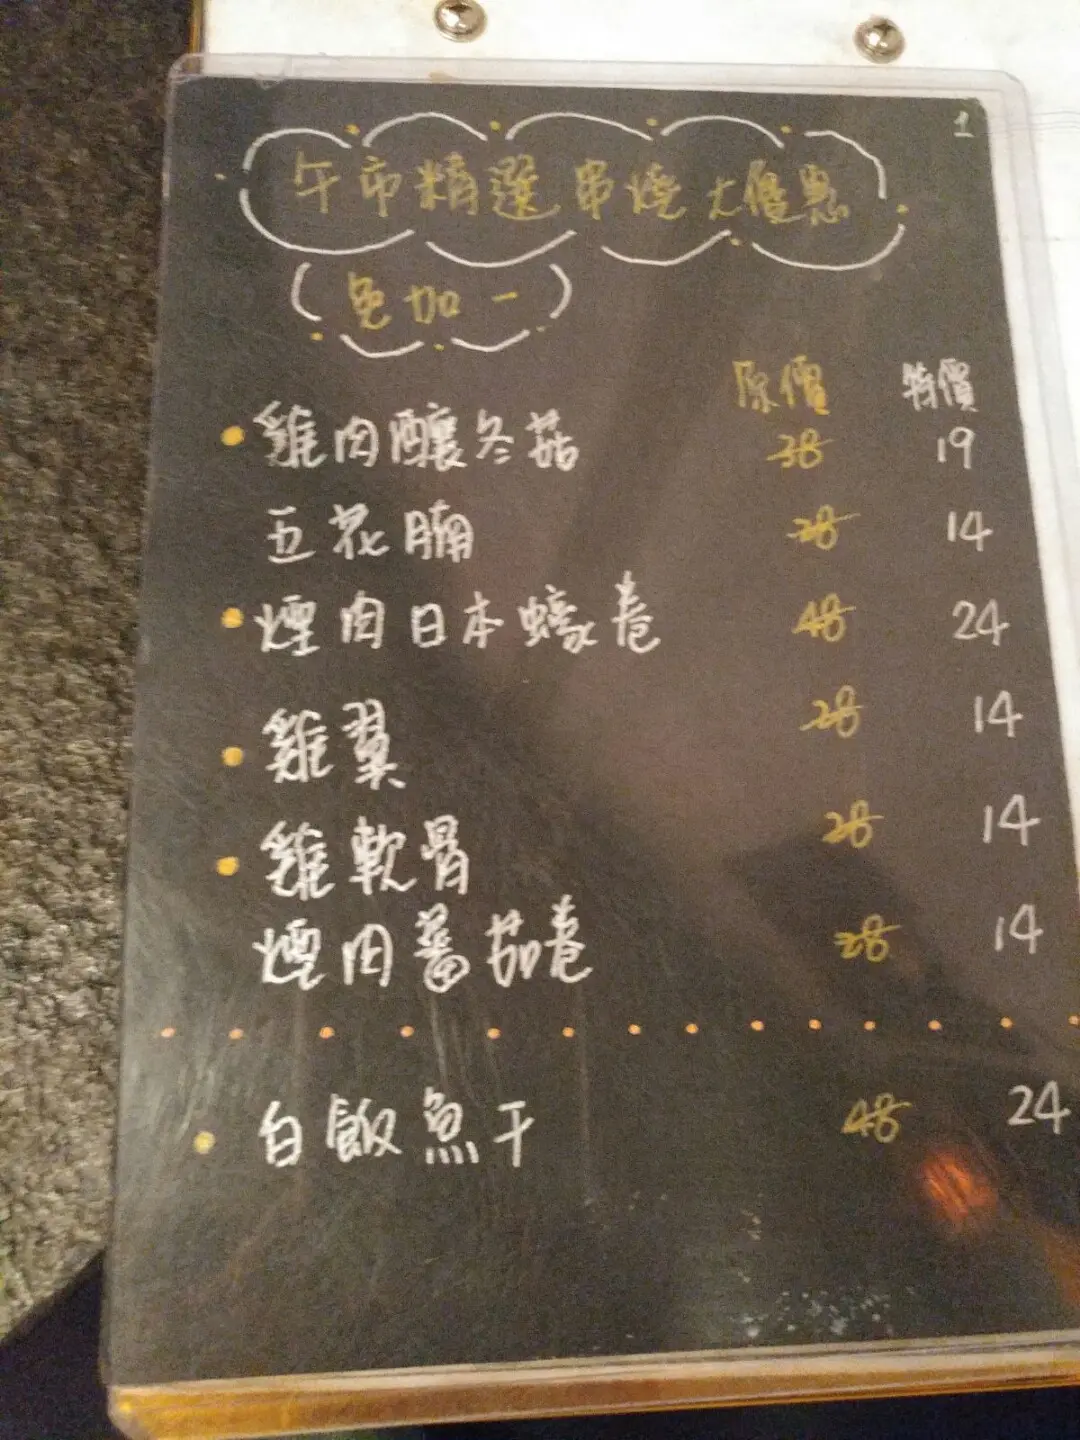 1
午市精選串燒大優惠
免加一
原價 特價
雞肉釀冬菇 38 19
五花腩 28 14
煙肉日本蠔卷 48 24
雞翼 28 14
雞軟骨 28 14
煙肉蕃茄卷 28 14
白飯魚干 48 24